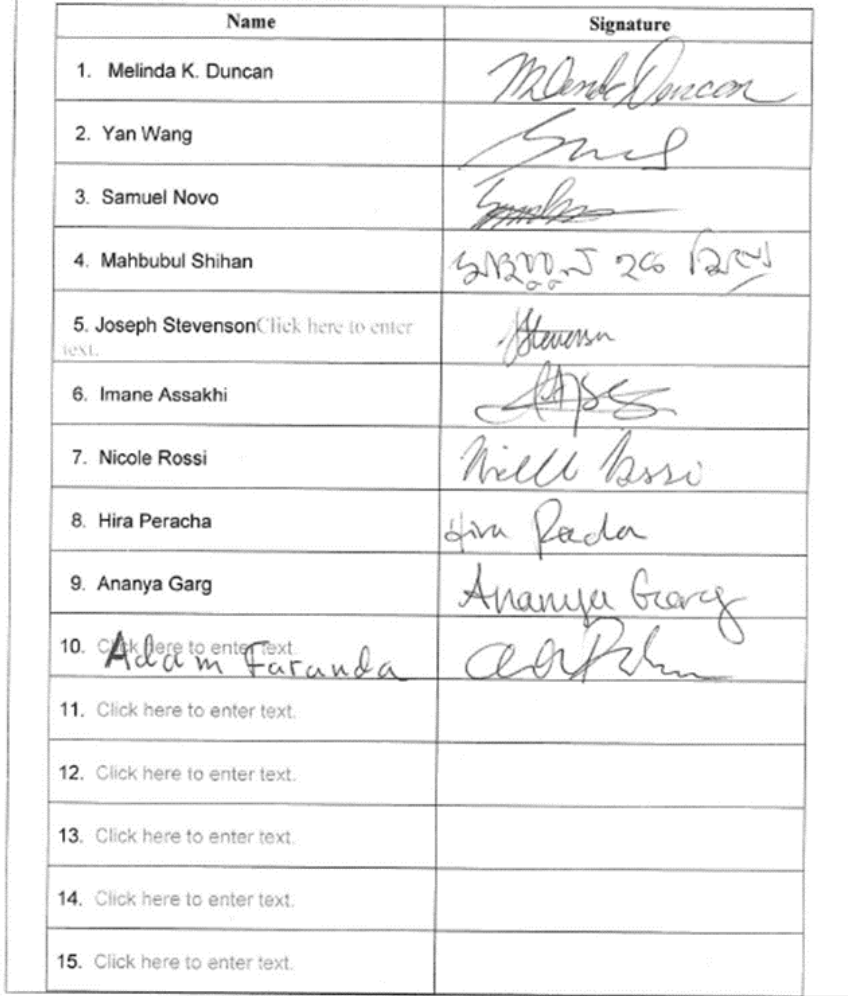 Name Signature
1. Melinda K. Duncan Melinda Duncan
2. Yan Wang
3. Samuel Novo
4. Mahbubul Shihan মাহবুবুল হক
5. Joseph StevensonClick here to enter JStevenson
text.
6. Imane Assakhi
7. Nicole Rossi Nicole Rossi
8. Hira Peracha Hira
9. Ananya Garg Ananya Garg
10. Click here to enter text. Adam Faranda
11. Click here to enter text.
12. Click here to enter text.
13. Click here to enter text.
14. Click here to enter text.
15. Click here to enter text.